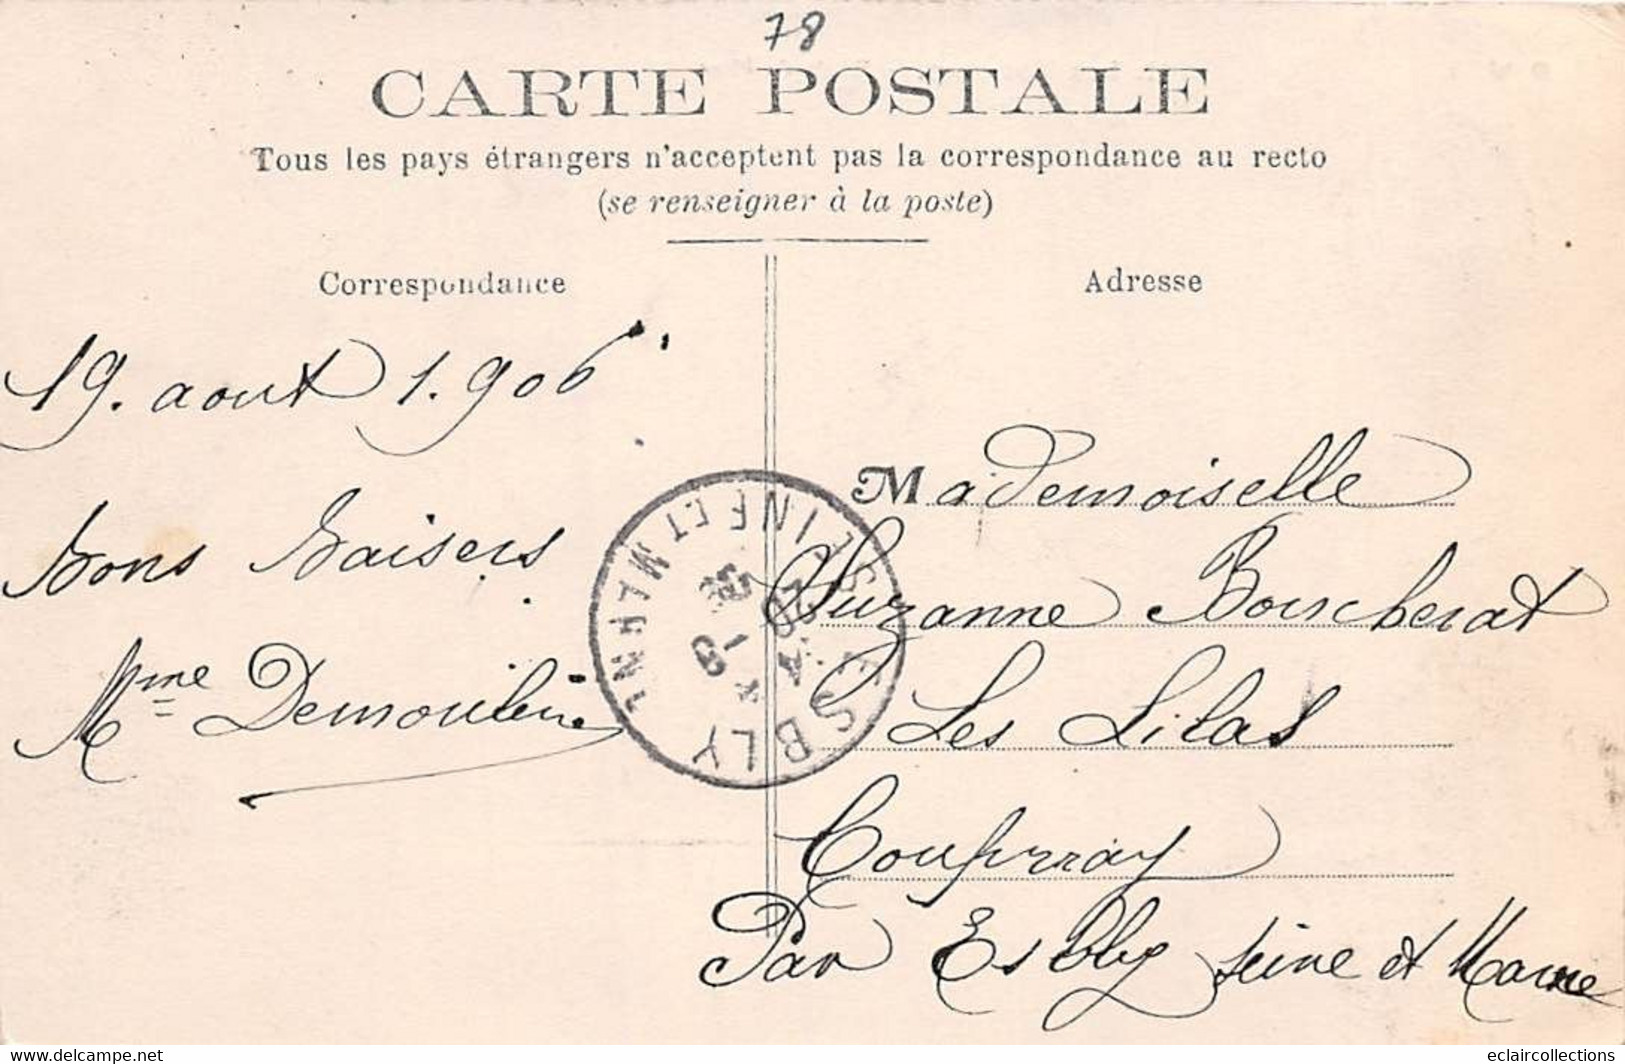 78
CARTE POSTALE
Tous les pays étrangers n'acceptent pas la correspondance au recto
(se renseigner à la poste)
Correspondance
Adresse
19. aout 1.906
Bons Baisers
Mme Demouline
Mademoiselle
Suzanne Boucherat
Les Lilas
Coupvray
Par Esbly Seine et Marne
ESBLY
SEINE ET MARNE
eclaircollections
www.delcampe.net